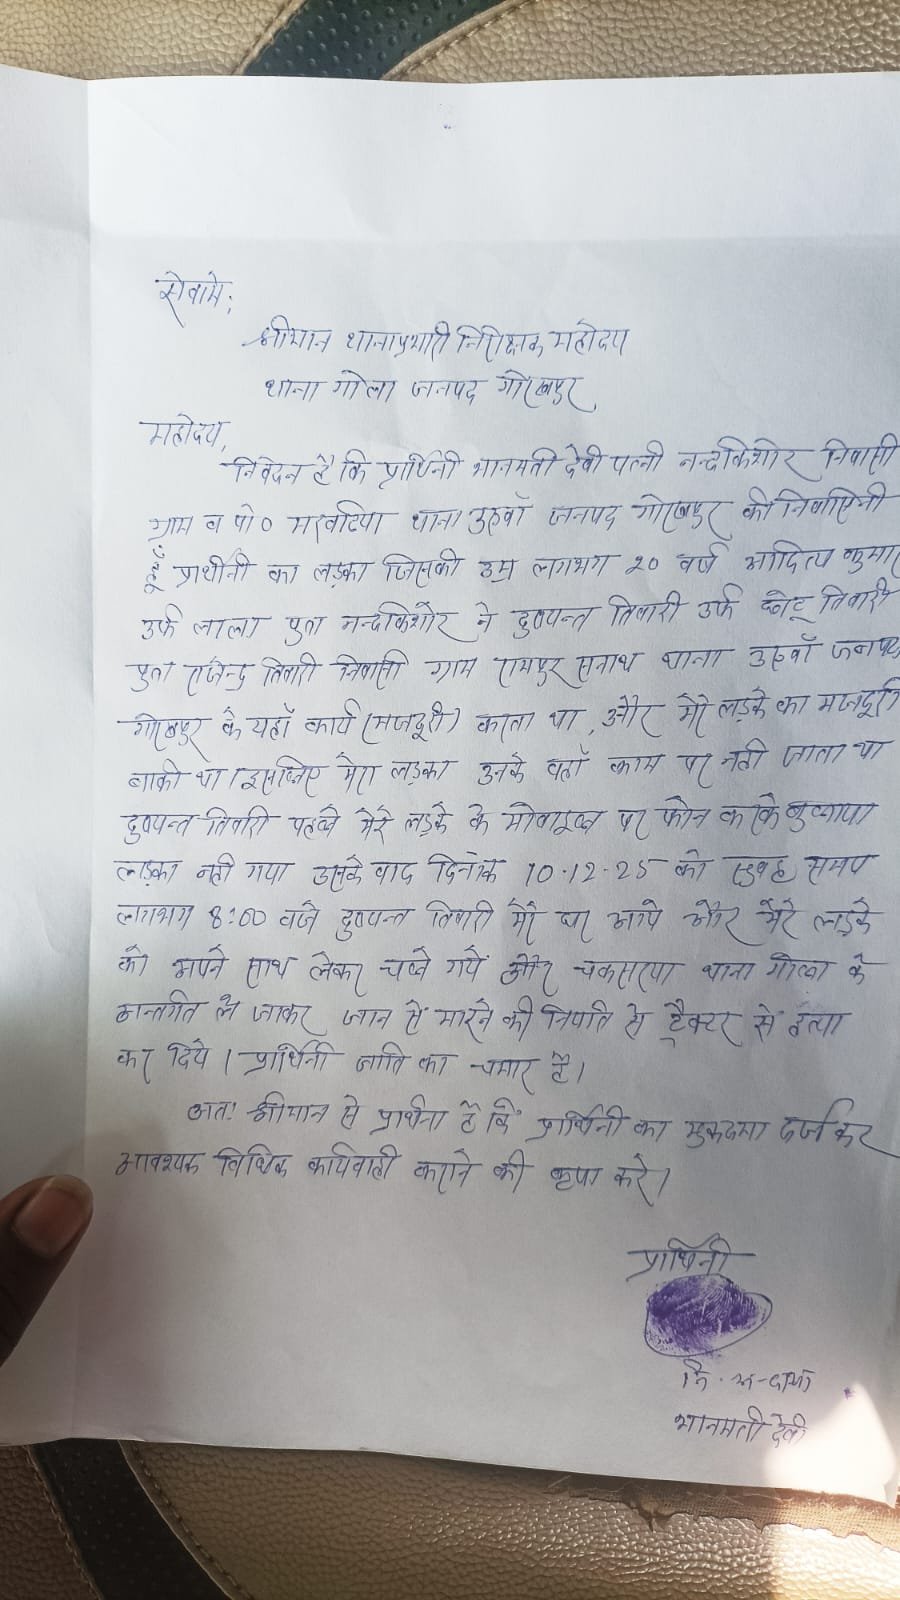 सेवामे,
श्रीमान थानाप्रभारी निरिक्षक महोदय
थाना गोला जनपद गोरखपुर
महोदय,
निवेदन है कि प्रार्थिनी भानमती देवी पत्नी नन्दकिशोर निवासी
ग्राम व पो० मरवटिया थाना उरुवाँ जनपद गोरखपुर की निवासिनी
हूँ प्रार्थीनी का लड़का जिसकी उम्र लगभग २० वर्ष आदित्य कुमार
उर्फ लाला पुत्र नन्दकिशोर ने दुष्यन्त तिवारी उर्फ छोटू तिवारी
पुत्र राजेन्द्र तिवारी निवासी ग्राम रामपुर थाना उरुवाँ जनपद
गोरखपुर के यहाँ कार्य (मजदूरी) करता था, और मेरे लड़के का मजदूरी
बाकी था। इसलिए मेरा लड़का उनके वहाँ काम पर नही जाता था
दुष्यन्त तिवारी पहले मेरे लड़के के मोबाइल पर फोन करके बुलाया
लड़का नही गया उसके बाद दिनांक 10.12.25 को सुबह समय
लगभग 8:00 बजे दुष्यन्त तिवारी मेरे घर आये और मेरे लड़के
को अपने साथ लेकर चले गये और चकसरया थाना गोला के
अन्तर्गत ले जाकर जान से मारने की नियति से ट्रैक्टर से हत्या
कर दिये। प्रार्थिनी जाति का चमार है।
अतः श्रीमान से प्रार्थना है कि प्रार्थिनी का मुकदमा दर्ज कर
आवश्यक विधिक कार्यवाही कराने की कृपा करे।
प्रार्थिनी
नि. अ-
भानमती देवी